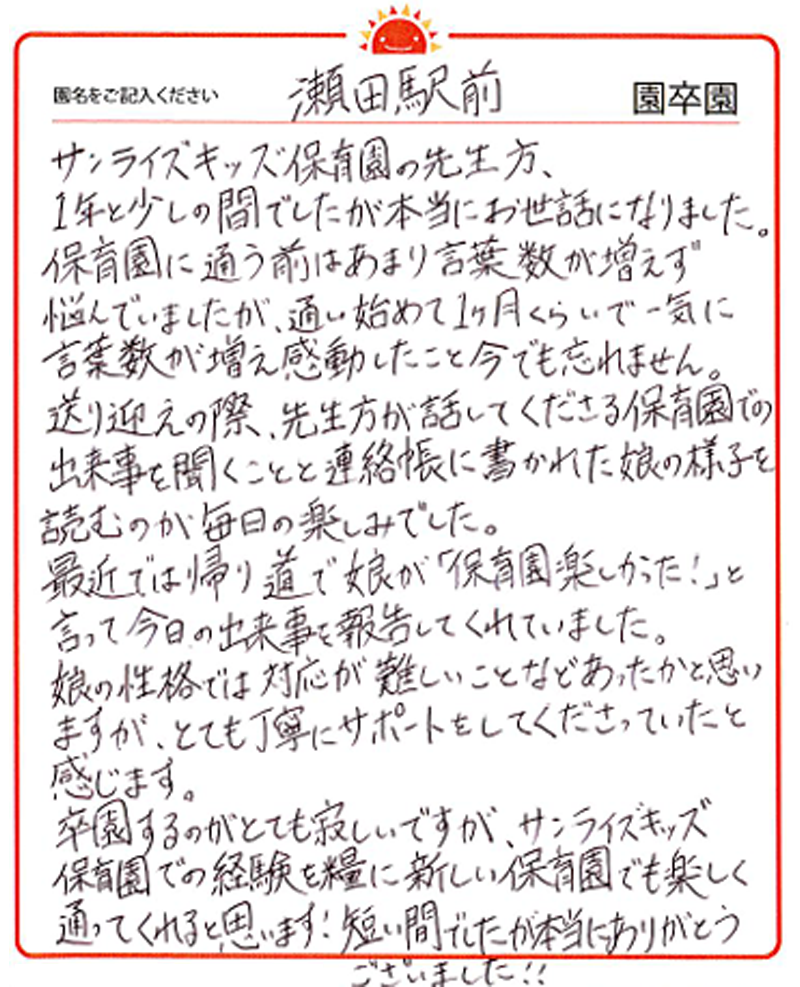 園名をご記入ください 瀬田駅前 園卒園
サンライズキッズ保育園の先生方、
1年と少しの間でしたが本当にお世話になりました。
保育園に通う前はあまり言葉数が増えず
悩んでいましたが、通い始めて1ヶ月くらいで一気に
言葉数が増え感動したこと今でも忘れません。
送り迎えの際、先生方が話してくださる保育園での
出来事を聞くことと連絡帳に書かれた娘の様子を
読むのが毎日の楽しみでした。
最近では帰り道で娘が「保育園楽しかった!」と
言って今日の出来事を報告してくれていました。
娘の性格では対応が難しいことなどあったかと思い
ますが、とても丁寧にサポートをしてくださっていたと
感じます。
卒園するのがとても寂しいですが、サンライズキッズ
保育園での経験を糧に新しい保育園でも楽しく
通ってくれると思います!短い間でしたが本当にありがとう
ございました!!